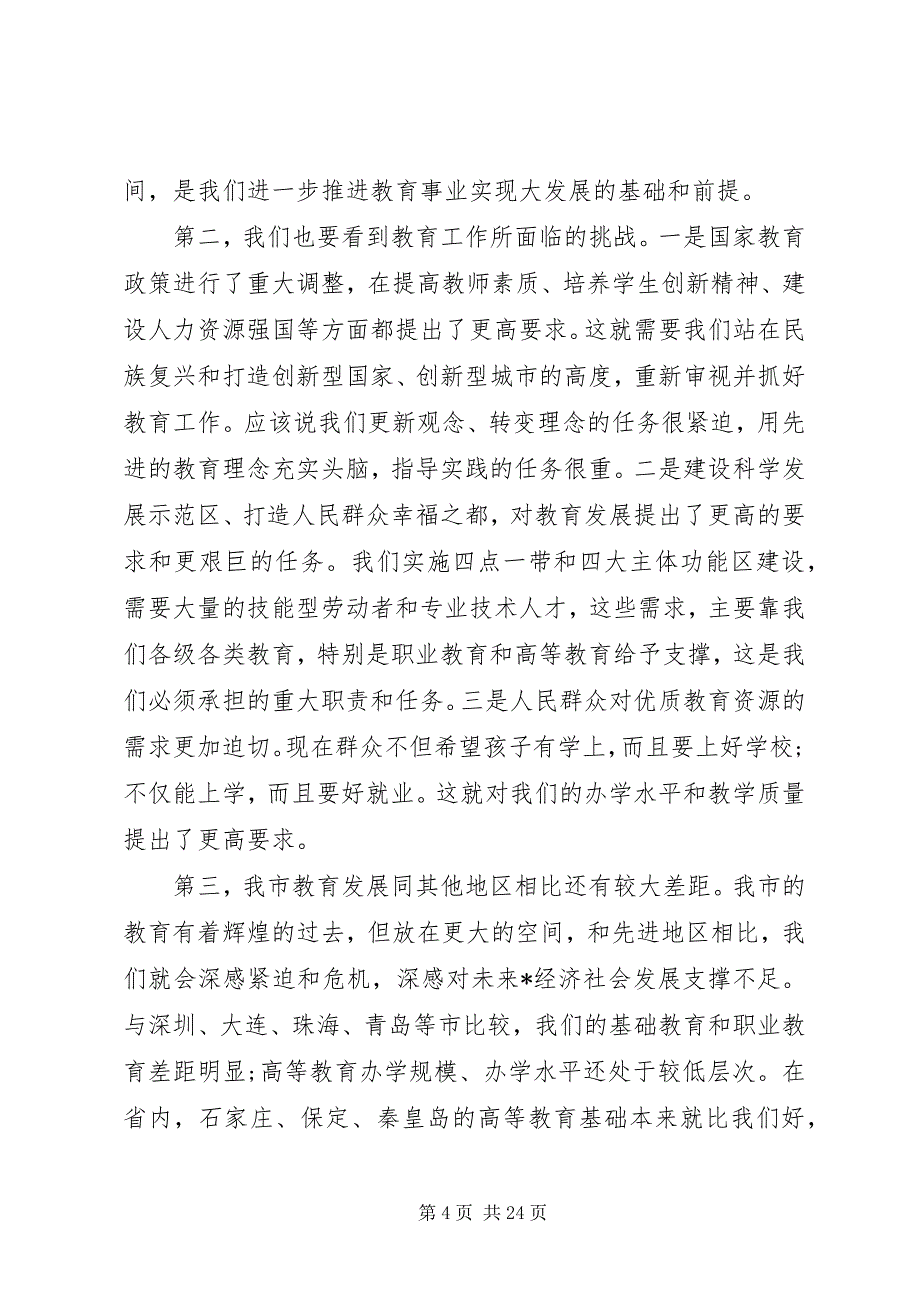 间，是我们进一步推进教育事业实现大发展的基础和前提。
第二，我们也要看到教育工作所面临的挑战。一是国家教育
政策进行了重大调整，在提高教师素质、培养学生创新精神、建
设人力资源强国等方面都提出了更高要求。这就需要我们站在民
族复兴和打造创新型国家、创新型城市的高度，重新审视并抓好
教育工作。应该说我们更新观念、转变理念的任务很紧迫，用先
进的教育理念充实头脑，指导实践的任务很重。二是建设科学发
展示范区、打造人民群众幸福之都，对教育发展提出了更高的要
求和更艰巨的任务。我们实施四点一带和四大主体功能区建设，
需要大量的技能型劳动者和专业技术人才，这些需求，主要靠我
们各级各类教育，特别是职业教育和高等教育给予支撑，这是我
们必须承担的重大职责和任务。三是人民群众对优质教育资源的
需求更加迫切。现在群众不但希望孩子有学上，而且要上好学校;
不仅能上学，而且要好就业。这就对我们的办学水平和教学质量
提出了更高要求。
第三，我市教育发展同其他地区相比还有较大差距。我市的
教育有着辉煌的过去，但放在更大的空间，和先进地区相比，我
们就会深感紧迫和危机，深感对未来*经济社会发展支撑不足。
与深圳、大连、珠海、青岛等市比较，我们的基础教育和职业教
育差距明显;高等教育办学规模、办学水平还处于较低层次。在
省内，石家庄、保定、秦皇岛的高等教育基础本来就比我们好，
第 4 页 共 24 页